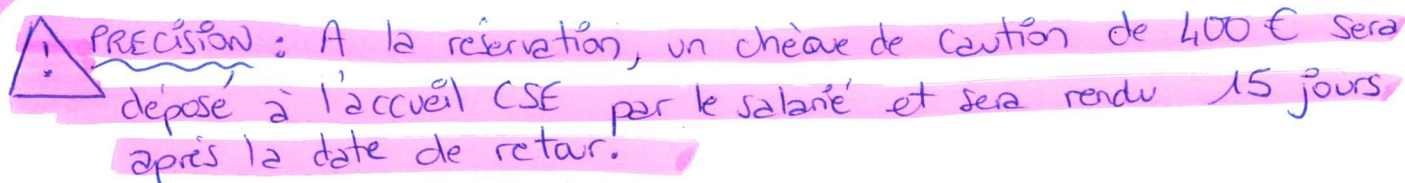 PRECISION : A la réservation, un chèque de caution de 400 € sera
déposé à l'accueil CSE par le salarié et sera rendu 15 jours
après la date de retour.